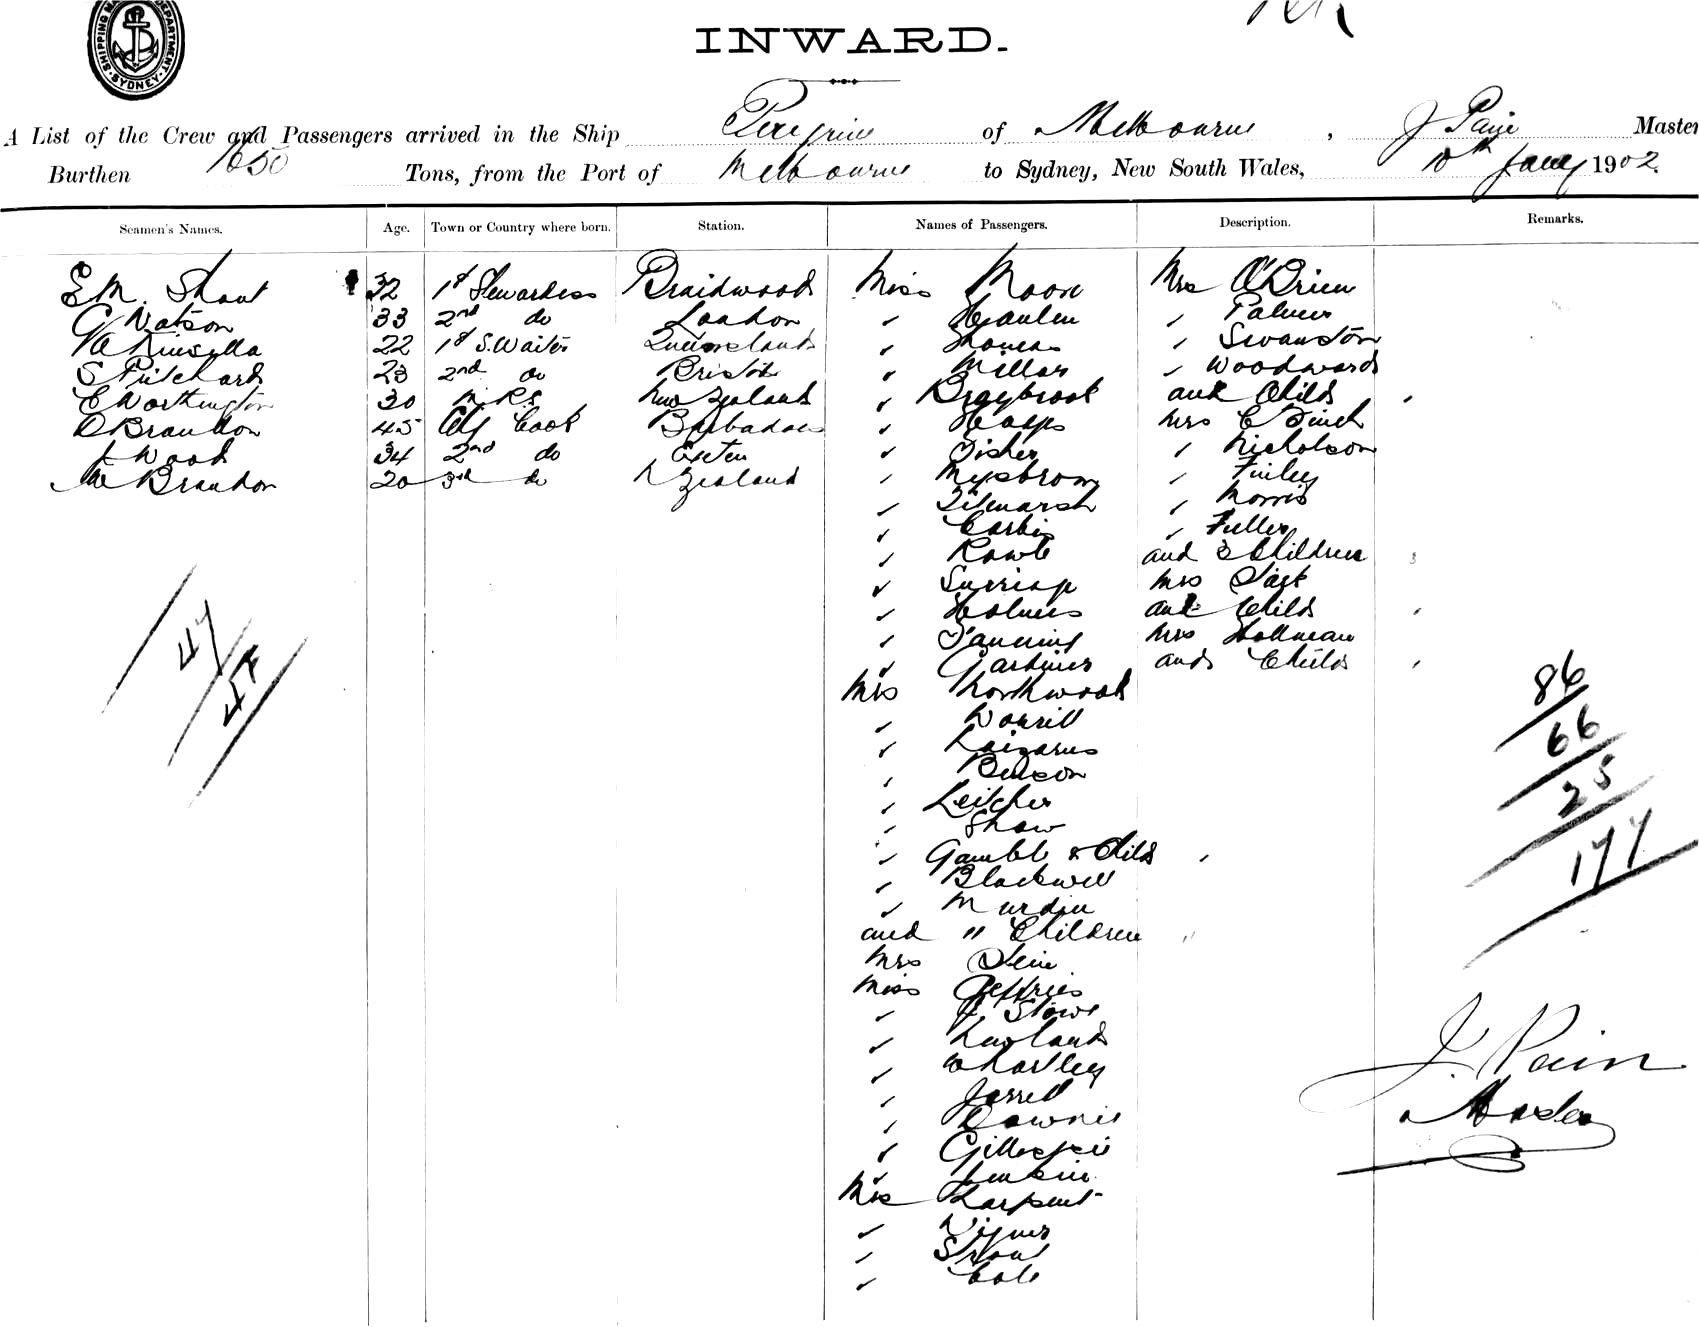 SHIPPING DEPARTMENT. SYDNEY
INWARD.
A List of the Crew and Passengers arrived in the Ship Peregrine of Melbourne, J Paine Master
Burthen 1650 Tons, from the Port of Melbourne to Sydney, New South Wales, 10th Jany 1902.
Seamen's Names. Age. Town or Country where born. Station. Names of Passengers. Description. Remarks.
E M. Shaut 32 1st Stewardess Braidwood Miss Moon Mrs O'Brien
G Watson 33 2nd do London " Hanlen " Palmer
Kinsella 22 1st S. Waiter Queensland " Thomas " Swanston
S Pritchard 23 2nd do Bristol " Millar " Woodward
E Worthington 30 M.R.S New Zealand " Braybrook and Child
D Brandon 45 Cook Barbadoes " Heaps Mrs E Finch
Wood 34 2nd do Exeter " Fisher " Nicholson
Brandon 20 3rd do N Zealand " " Finley
" Titmarsh " Morris
" Corbin " Fuller
" Rowe and 3 Children 3
" Mrs Sage
" Holmes and Child
" Fanning Mrs Hollman
" Gardiner and Child
Mrs Northwood
" Worrill
" Laizarus
" Benson
" Leitcher
" Shaw
" Gamble & Child
" Blackwell
" Murdin
and " Children "
Mrs
Miss Jeffries
" Stowe
" Newlands
" Whartley
" Jarrett
" Downie
" Gillespie
" Junkin
Mrs Larpent
"
"
" Cole
47
47
86
66
25
177
J. Pain
Master